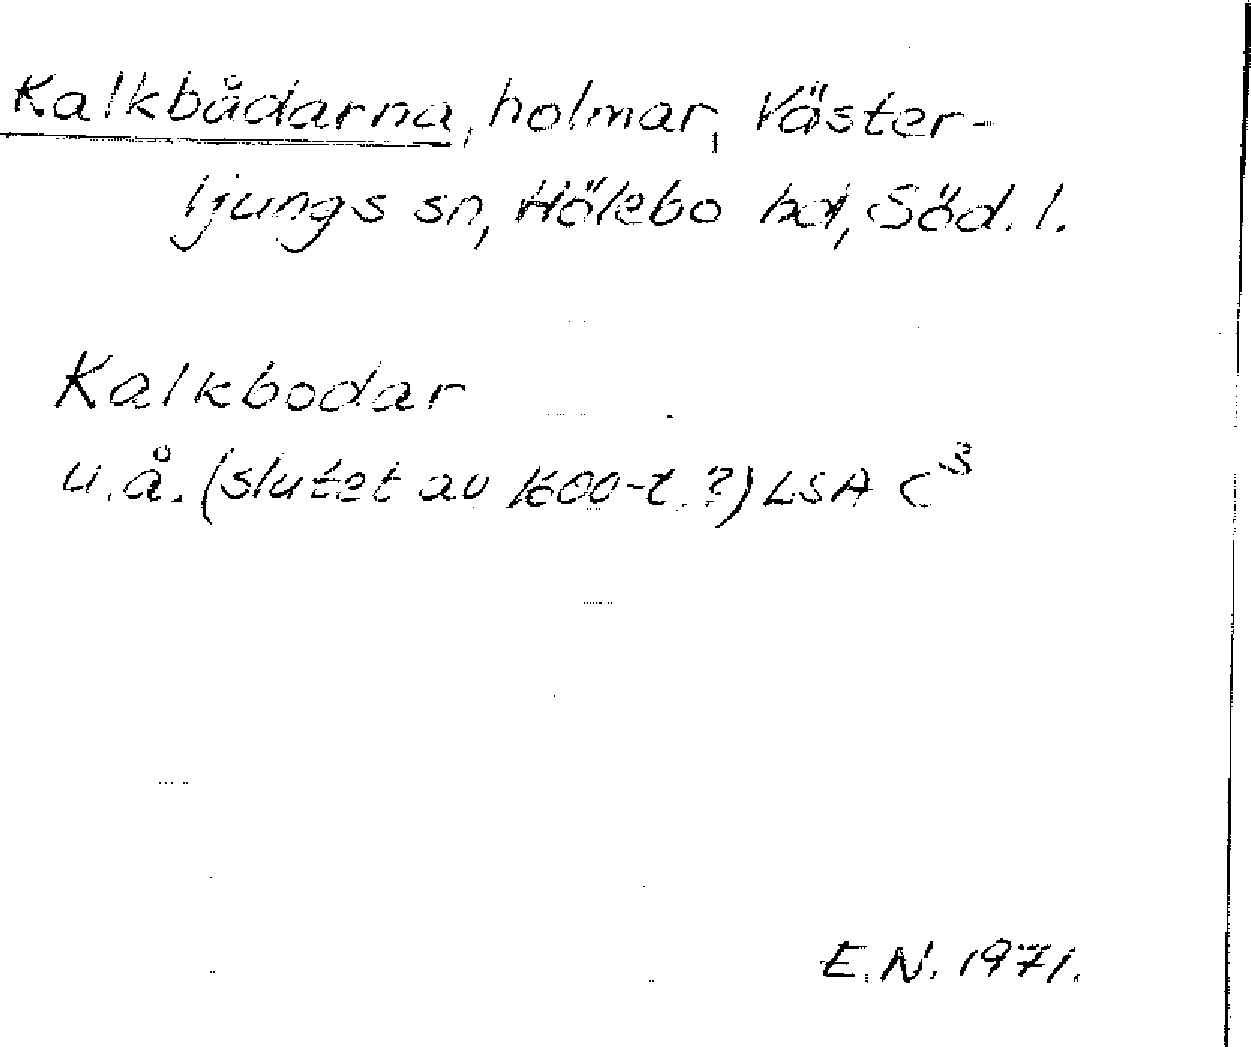 Kalkbådarna, holmar, Väster-
ljungs sn, Hölebo hd, Söd. l.
Kalkbodar
u.å. (slutet av 1600-t. ?) LSA C³
E.N. 1971.